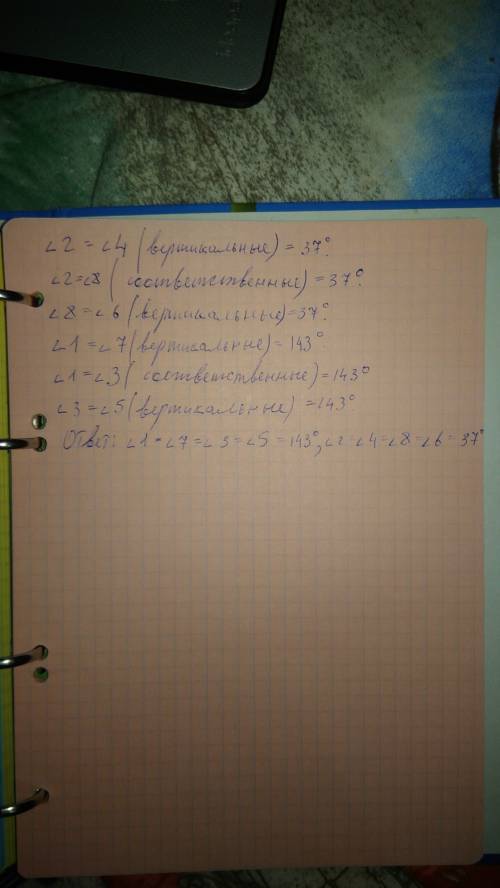 ∠2 = ∠4 (вертикальные) = 37°.
∠2=∠8 (соответственные) = 37°.
∠8 = ∠6 (вертикальные)=37°.
∠1 = ∠7 (вертикальные) = 143°
∠1 = ∠3 (соответственные) = 143°
∠3 = ∠5 (вертикальные) = 143°
Ответ: ∠1 = ∠7 = ∠3 = ∠5 = 143°, ∠2 = ∠4 = ∠8 = ∠6 = 37°